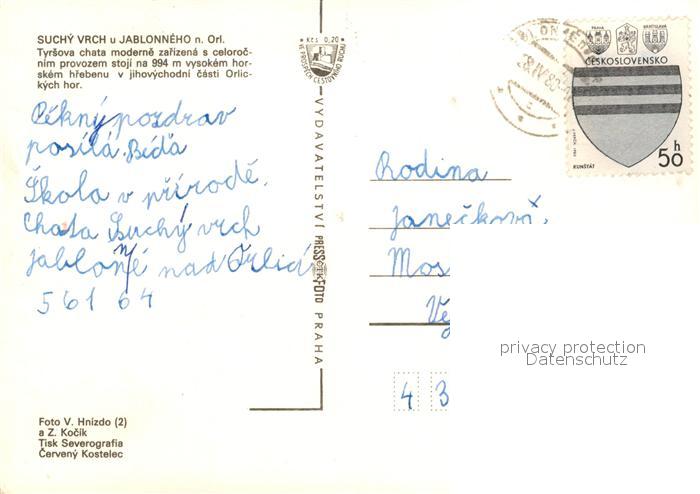 SUCHÝ VRCH u JABLONNÉHO n. Orl.
Tyršova chata moderně zařízená s celoroč-
ním provozem stojí na 994 m vysokém hor-
ském hřebenu v jihovýchodní části Orlic-
kých hor.
Kčs 0,20
VE PROSPĚCH CESTOVNÍHO RUCHU
PRAHA
BRATISLAVA
ČESKOSLOVENSKO
KUNŠTÁT
50 h
Pěkný pozdrav
posílá Bíďa
Škola v přírodě.
Chata Suchý vrch
Jablonné nad Orlicí
561 64
VYDAVATELSTVÍ PRESSFOTO PRAHA
Rodina
Janečkovi,
Mos
Ve
4 3
privacy protection
Datenschutz
Foto V. Hnízdo (2)
a Z. Kočík
Tisk Severografia
Červený Kostelec